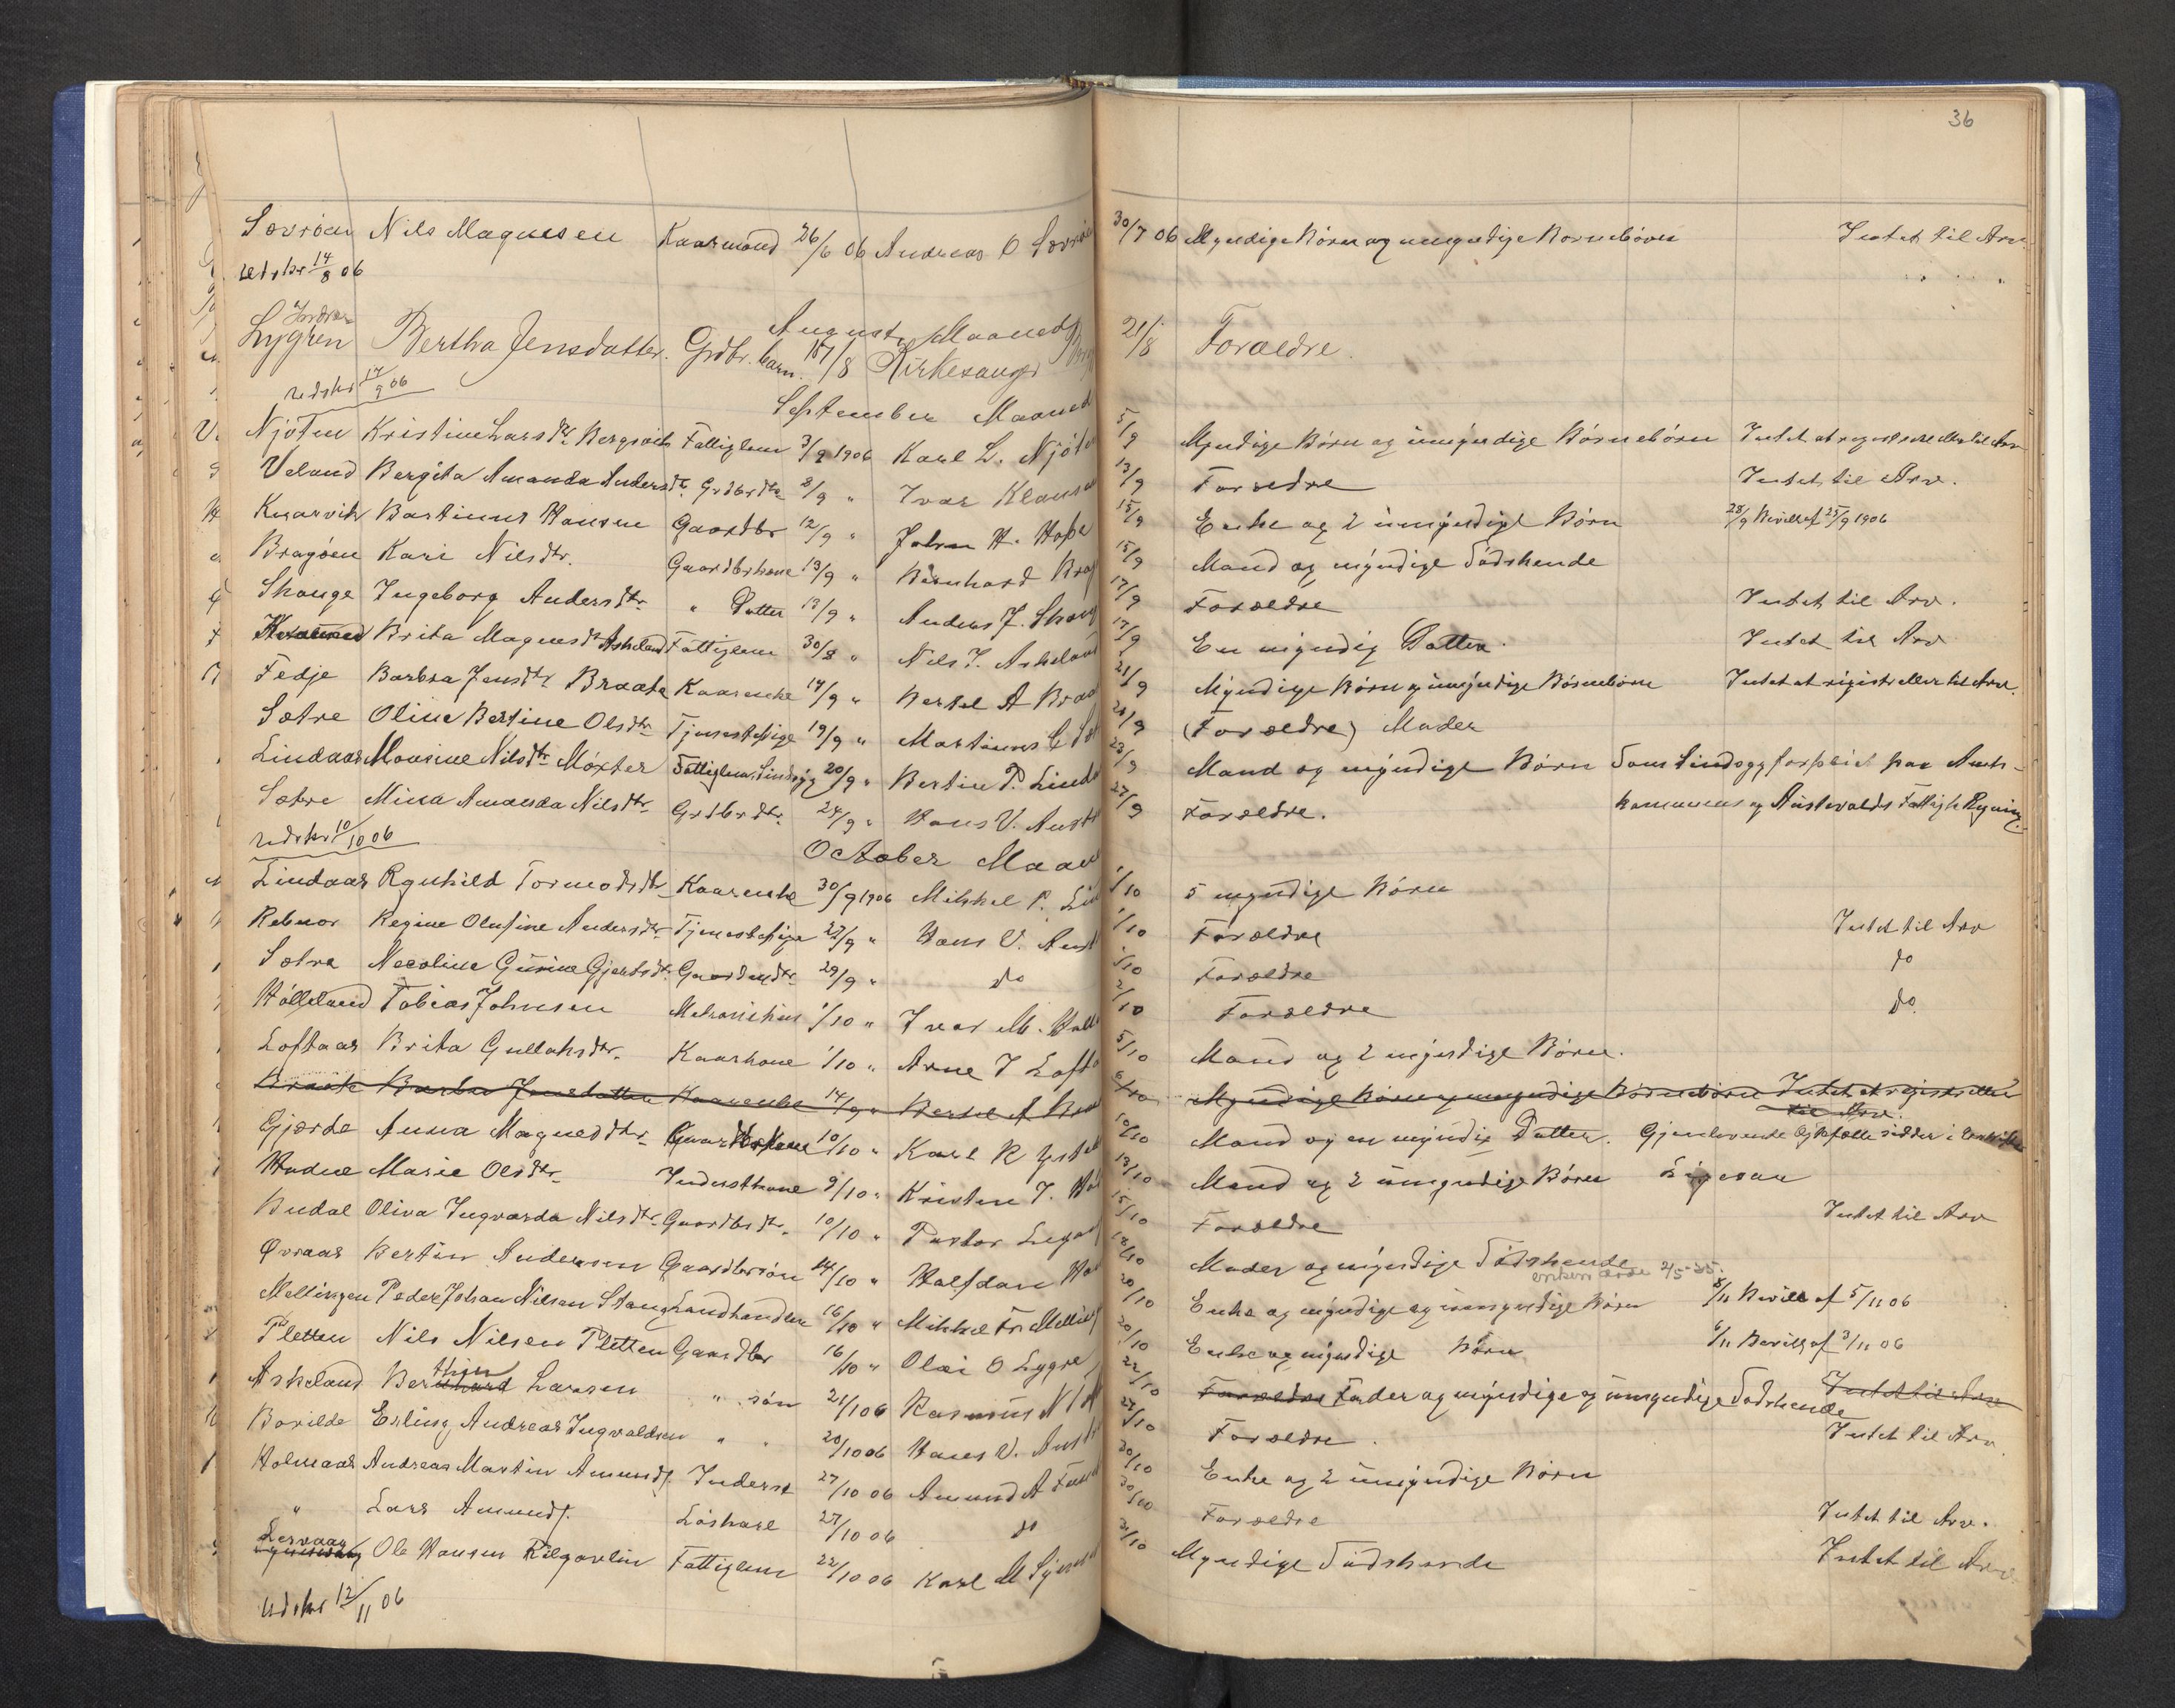 36
Sævröen Nils Magnesen Kaarmand 26/6 06 Andreas O Sævröen 30/7 06 Myndige Börn og umyndige Börnebörn Intet til Arv
udskr 14/8 06
August Maaned
Indre
Lygren Bertha Jensdatter. Grdbr. barn. 18/8 Kirkesanger 21/8 Forældre.
udskr 17/9 06
September Maaned
Njöten Kristine Larsdtr Bergsvik Fattiglem 3/9 1906 Karl L. Njöten 5/9 Myndige Börn og umyndige Börnebörn Intet at registrere eller til Arv
Veland Bergita Amanda Andersdtr Grdbrdtr 8/9 " Ivar Klausen 13/9 Forældre Intet til Arv.
Knarvik Bastinus Hansen Gaardbr 12/9 " John H. Hope 15/9 Enke og 2 umyndige Börn 28/9 Bevill af 25/9 1906
Bragöen Kari Nilsdtr. Gaardbrkone 13/9 " Bernhard Brag 15/9 Mand og myndige Södskende
Skauge Ingeborg Andersdtr " Datter 13/9 " Anders J. Skaug 17/9 Forældre Intet til Arv.
Brita Magnesdtr Askeland Fattiglem 30/8 " Nils J. Askeland 17/9 En myndig Datter. Intet til Arv
Fedje Barbra Jensdtr Braate Kaarenke 14/9 " Bertel A Braa 21/9 Myndige Börn og umyndige Börnebörn Intet at registr eller til Arv.
Sætre Oline Bertine Olsdtr Tjenestepige 19/9 " Martinus 26/9 (Forældre) Moder
Lindaas Monsine Nilsdtr Möxter Fattiglem, Sindssyg 20/9 " Bertin P. Linda 23/9 Mand og myndige Börn Som Sindssyg forpleiet paa Amts-
kommunens og Austevolds Fattigk Regning.
Sætre Mina Amanda Nilsdtr Grdbrdtr. 24/9 " Hans V. Aust 27/9 Forældre.
udskr 10/10 06
October Maaned
Lindaas Rgnhild Tormodsdtr Kaarenke 30/9 1906 Mikkel P. Lin 1/10 5 myndige Börn
Rebnor Regine Olufine Andersdtr Tjenestepige 27/9 " Hans V. Aust 1/10 Forældre Intet til Arv
Sætre Necoline Gurine Gjertsdtr. Gaardmdtr 29/9 " do /10 Forældre do
Hölleland Tobias Johnsen Mekanikus 1/10 " Ivar M. Höll 2/10 Forældre do.
Loftaas Brita Gullaksdtr. Kaarkone 1/10 " Arne J Lofta 5/10 Mand og 2 myndige Börn.
Braate Barbra Jensdatter Kaarenke 14/9 " Bertel A Braa 6/10 Myndige Börn og umyndige Börnebörn Intet at registr eller
til Arv.
Gjærde Anna Magnesdtr Gaardbrkone 10/10 " Karl R Yste 10/10 Mand og en myndig Datter. Gjenlevende Ægtefælle sidder i
Hodne Marie Olsdtr Inderstkone 9/10 " Kristen J. Ho 13/10 Mand og 2 umyndige Börn Ligesaa
Budal Oliva Ingvarda Nilsdtr Gaardbrdtr. 10/10 " Pastor 15/10 Forældre Intet til Arv
Øvraas Bertin Andersen Gaardbrsön 14/10 " Halfdan Ha 18/10 Moder og myndige Södskende
enken døde 2/5-35.
Mellingen Peder Johan Nilsen Stang Landhandler 16/10 " Mikkel Fr. Melling 20/10 Enke og myndige og umyndige Börn 8/11 Bevill af 5/11 06
Pletten Nils Nilsen Pletten Gaardbr 16/10 " Olai O Lygre 20/10 Enke og myndige Börn 6/11 Bevill af 3/11 06
thin
Askeland Bernhard Larsen " sön 21/10 6 Rasmus N 22/10 Forældre Fader og myndige og umyndige Södskende Intet til Arv
Börilde Erling Andreas Ingvaldsen " " 20/10 06 Hans V. Aust 27/10 Forældre. Intet til Arv.
Holmaas Andreas Martin Amunds. Inderst 27/10 06 Amund A 30/10 Enke og 2 umyndige Börn
" Lars Amunds. Löskarl 27/10 06 do 30/10 Forældre Intet til Arv.
Lervaag Ole Hansen Kilgavlin Fattiglem 22/10 06 Karl M 31/10 Myndige Södskende Intet til Arv.
Udskr 12/11 06